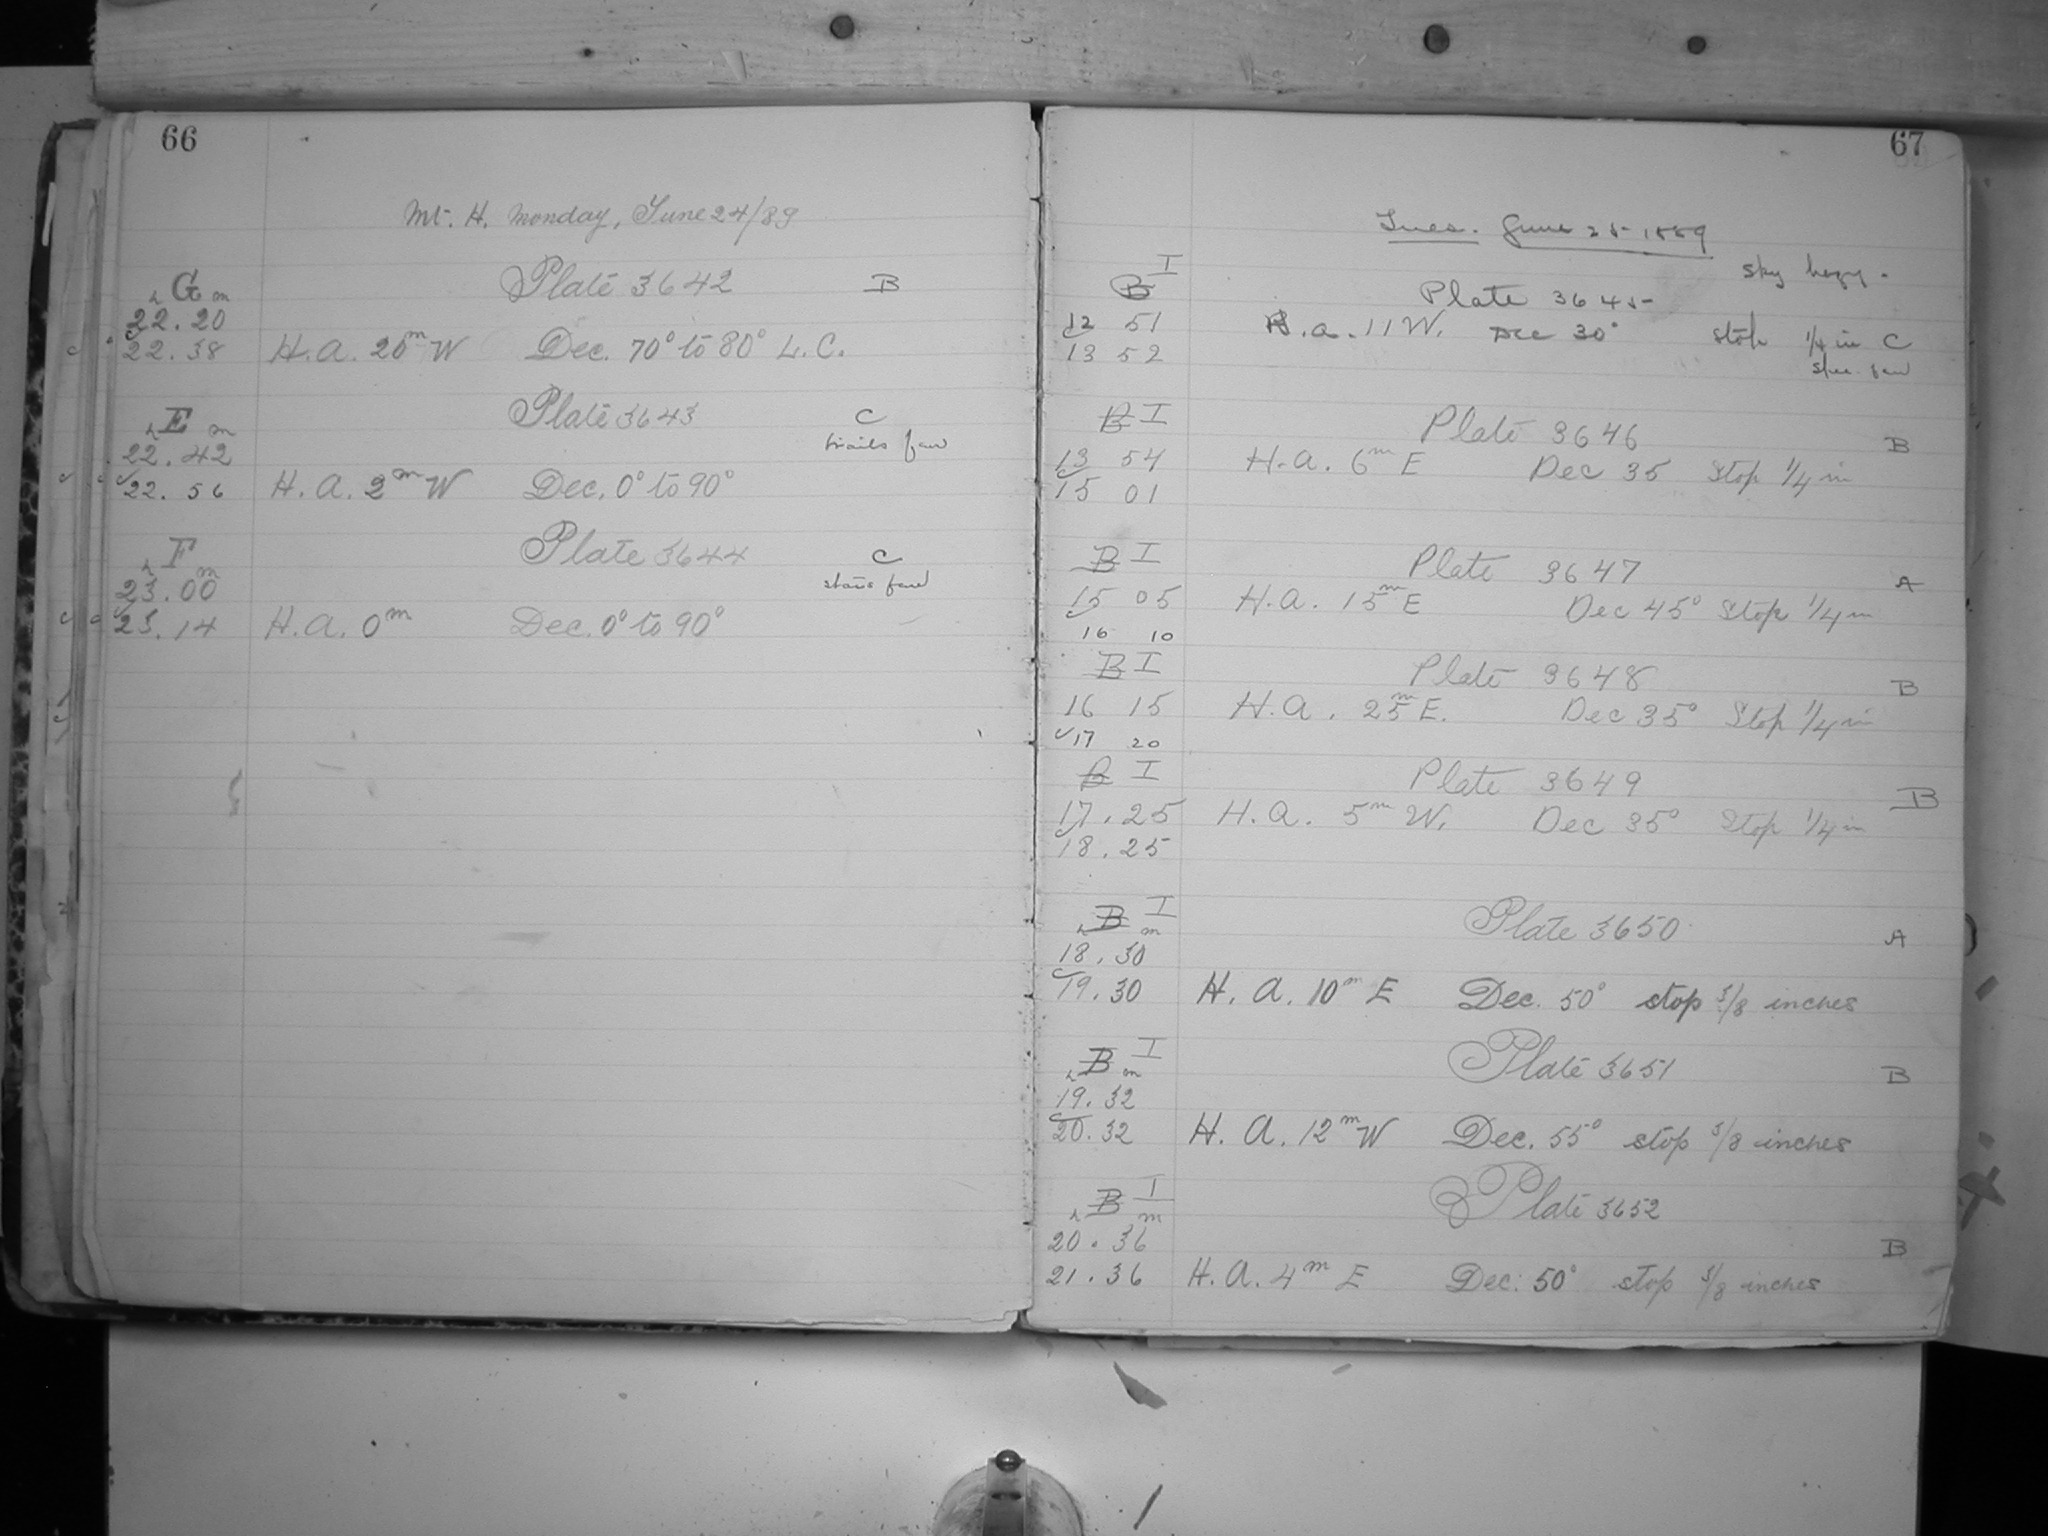 66
Mt. H. Monday, June 24/89
G Plate 3642 B
h m
22.20
22.38 H.A. 20m W Dec. 70° to 80° L.C.
E Plate 3643 C
h m trails faint
22.42
22.56 H.A. 2m W Dec. 0° to 90°
F Plate 3644 C
h m stars faint
23.00
23.14 H.A. 0m Dec. 0° to 90°
67
Tues. June 25-1889
sky hazy.
B I Plate 3645
12 51 H.a. 11 W. Dec 30° Stop 1/4 in C
13 52 spec. faint
B I Plate 3646 B
13 54 H.a. 6m E Dec 35 Stop 1/4 in
15 01
B I Plate 3647 A
15 05 H.a. 15m E Dec 45° Stop 1/4 in
16 10
B I Plate 3648 B
16 15 H.a. 25m E. Dec 35° Stop 1/4 in
17 20
B I Plate 3649 B
17.25 H.a. 5m W. Dec 35° Stop 1/4 in
18.25
B I Plate 3650 A
h m
18.30
19.30 H.A. 10m E Dec. 50° stop 3/8 inches
B I Plate 3651 B
h m
19.32
20.32 H.A. 12m W Dec. 55° stop 3/8 inches
B I Plate 3652
h m
20.36 B
21.36 H.A. 4m E Dec. 50° stop 3/8 inches